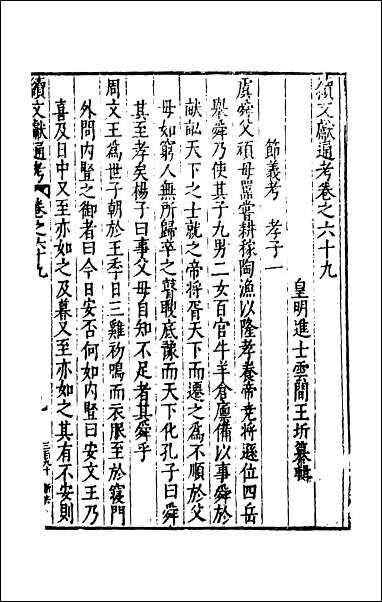 續文獻通考卷之六十九
皇明進士雲間王圻纂輯
節義考 孝子一
虞舜父頑母嚚嘗耕稼陶漁以隆孝養帝堯將遜位四岳
舉舜乃使其子九男二女百官牛羊倉廩備以事舜於
畎畝天下之士就之帝將胥天下而遷之為不順於父
母如窮人無所歸卒之瞽瞍底豫而天下化孔子曰舜
其至孝矣楊子曰事父母自知不足者其舜乎
周文王為世子朝於王季日三雞初鳴而衣服至於寢門
外問內豎之御者曰今日安否何如內豎曰安文王乃
喜及日中又至亦如之及暮又至亦如之其有不安則
續文獻通考 卷之六十九